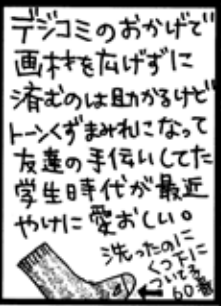 デジコミのおかげで
画材を広げずに
済むのは助かるけど
トーンくずまみれになって
友達の手伝いしてた
学生時代が最近
やけに愛おしい。
洗ったのに
くつ下に
ついてる